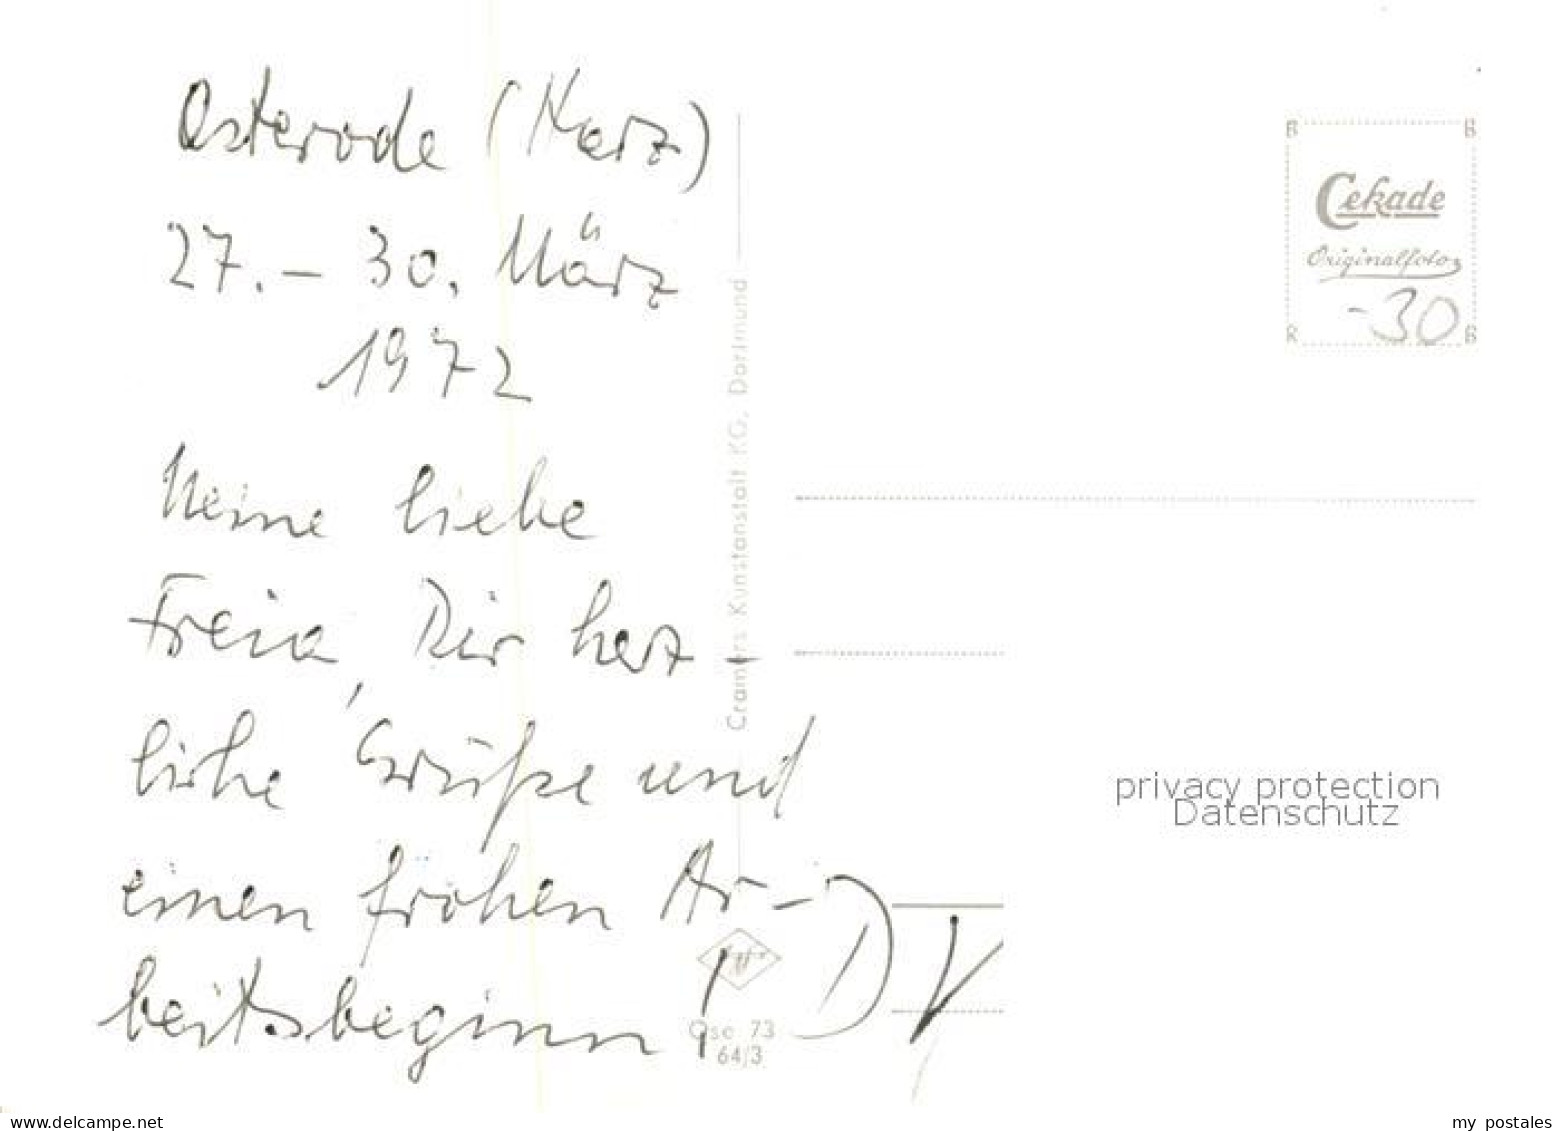 Osterode (Harz)
27. – 30. März
1972
Meine liebe
Freia, Dir herz-
liche Grüße und
einen frohen Ar-
beitsbeginn!
Cramers Kunstanstalt KG, Dortmund
Ose 73
64/3
Cekade
Originalfoto
-30
privacy protection
Datenschutz
www.delcampe.net
my_postales